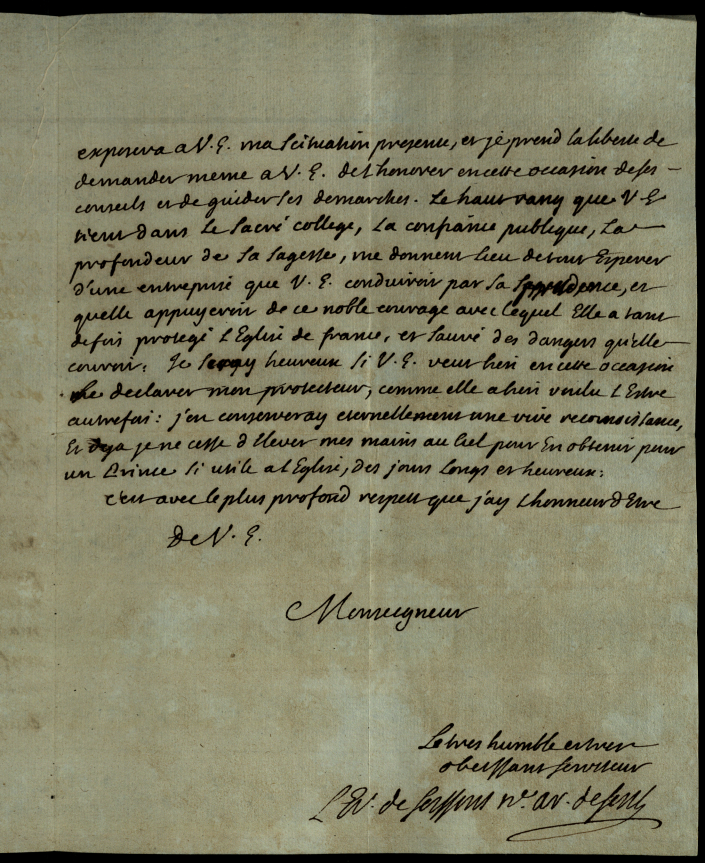 exposera a V. E. ma scituation presente, et je prend la liberte de
demander meme a V. E. de l honorer en cette occasion de ses
conseils et de guider ses demarches. Le haut rang que V E
tient dans Le Sacré college, La confiance publique, La
profondeur de Sa Sagesse, me donnent lieu de tout Esperer
d'une entreprise que V. E. conduiroit par Sa prudence, et
quelle appuyeroit de ce noble courage avec lequel Elle a tant
de fois protegé L Eglise de france, et Sauvé des dangers qu'elle
couroit: Je seray heureux Si V. E. veut bien en cette occasion
se declarer mon protecteur, comme elle a bien voulu L Estre
autrefois: j'en conserveray eternellement une vive reconoissance,
Et deja je ne cesse d Elever mes mains au Ciel pour En obtenir pour
un Prince Si utile a L Eglise, des jours Longs et heureux:
c'est avec le plus profond respect que j'ay L honneur d Estre
de V. E.
Monseigneur
Le tres humble et tres
obeissant serviteur
L Ev. de